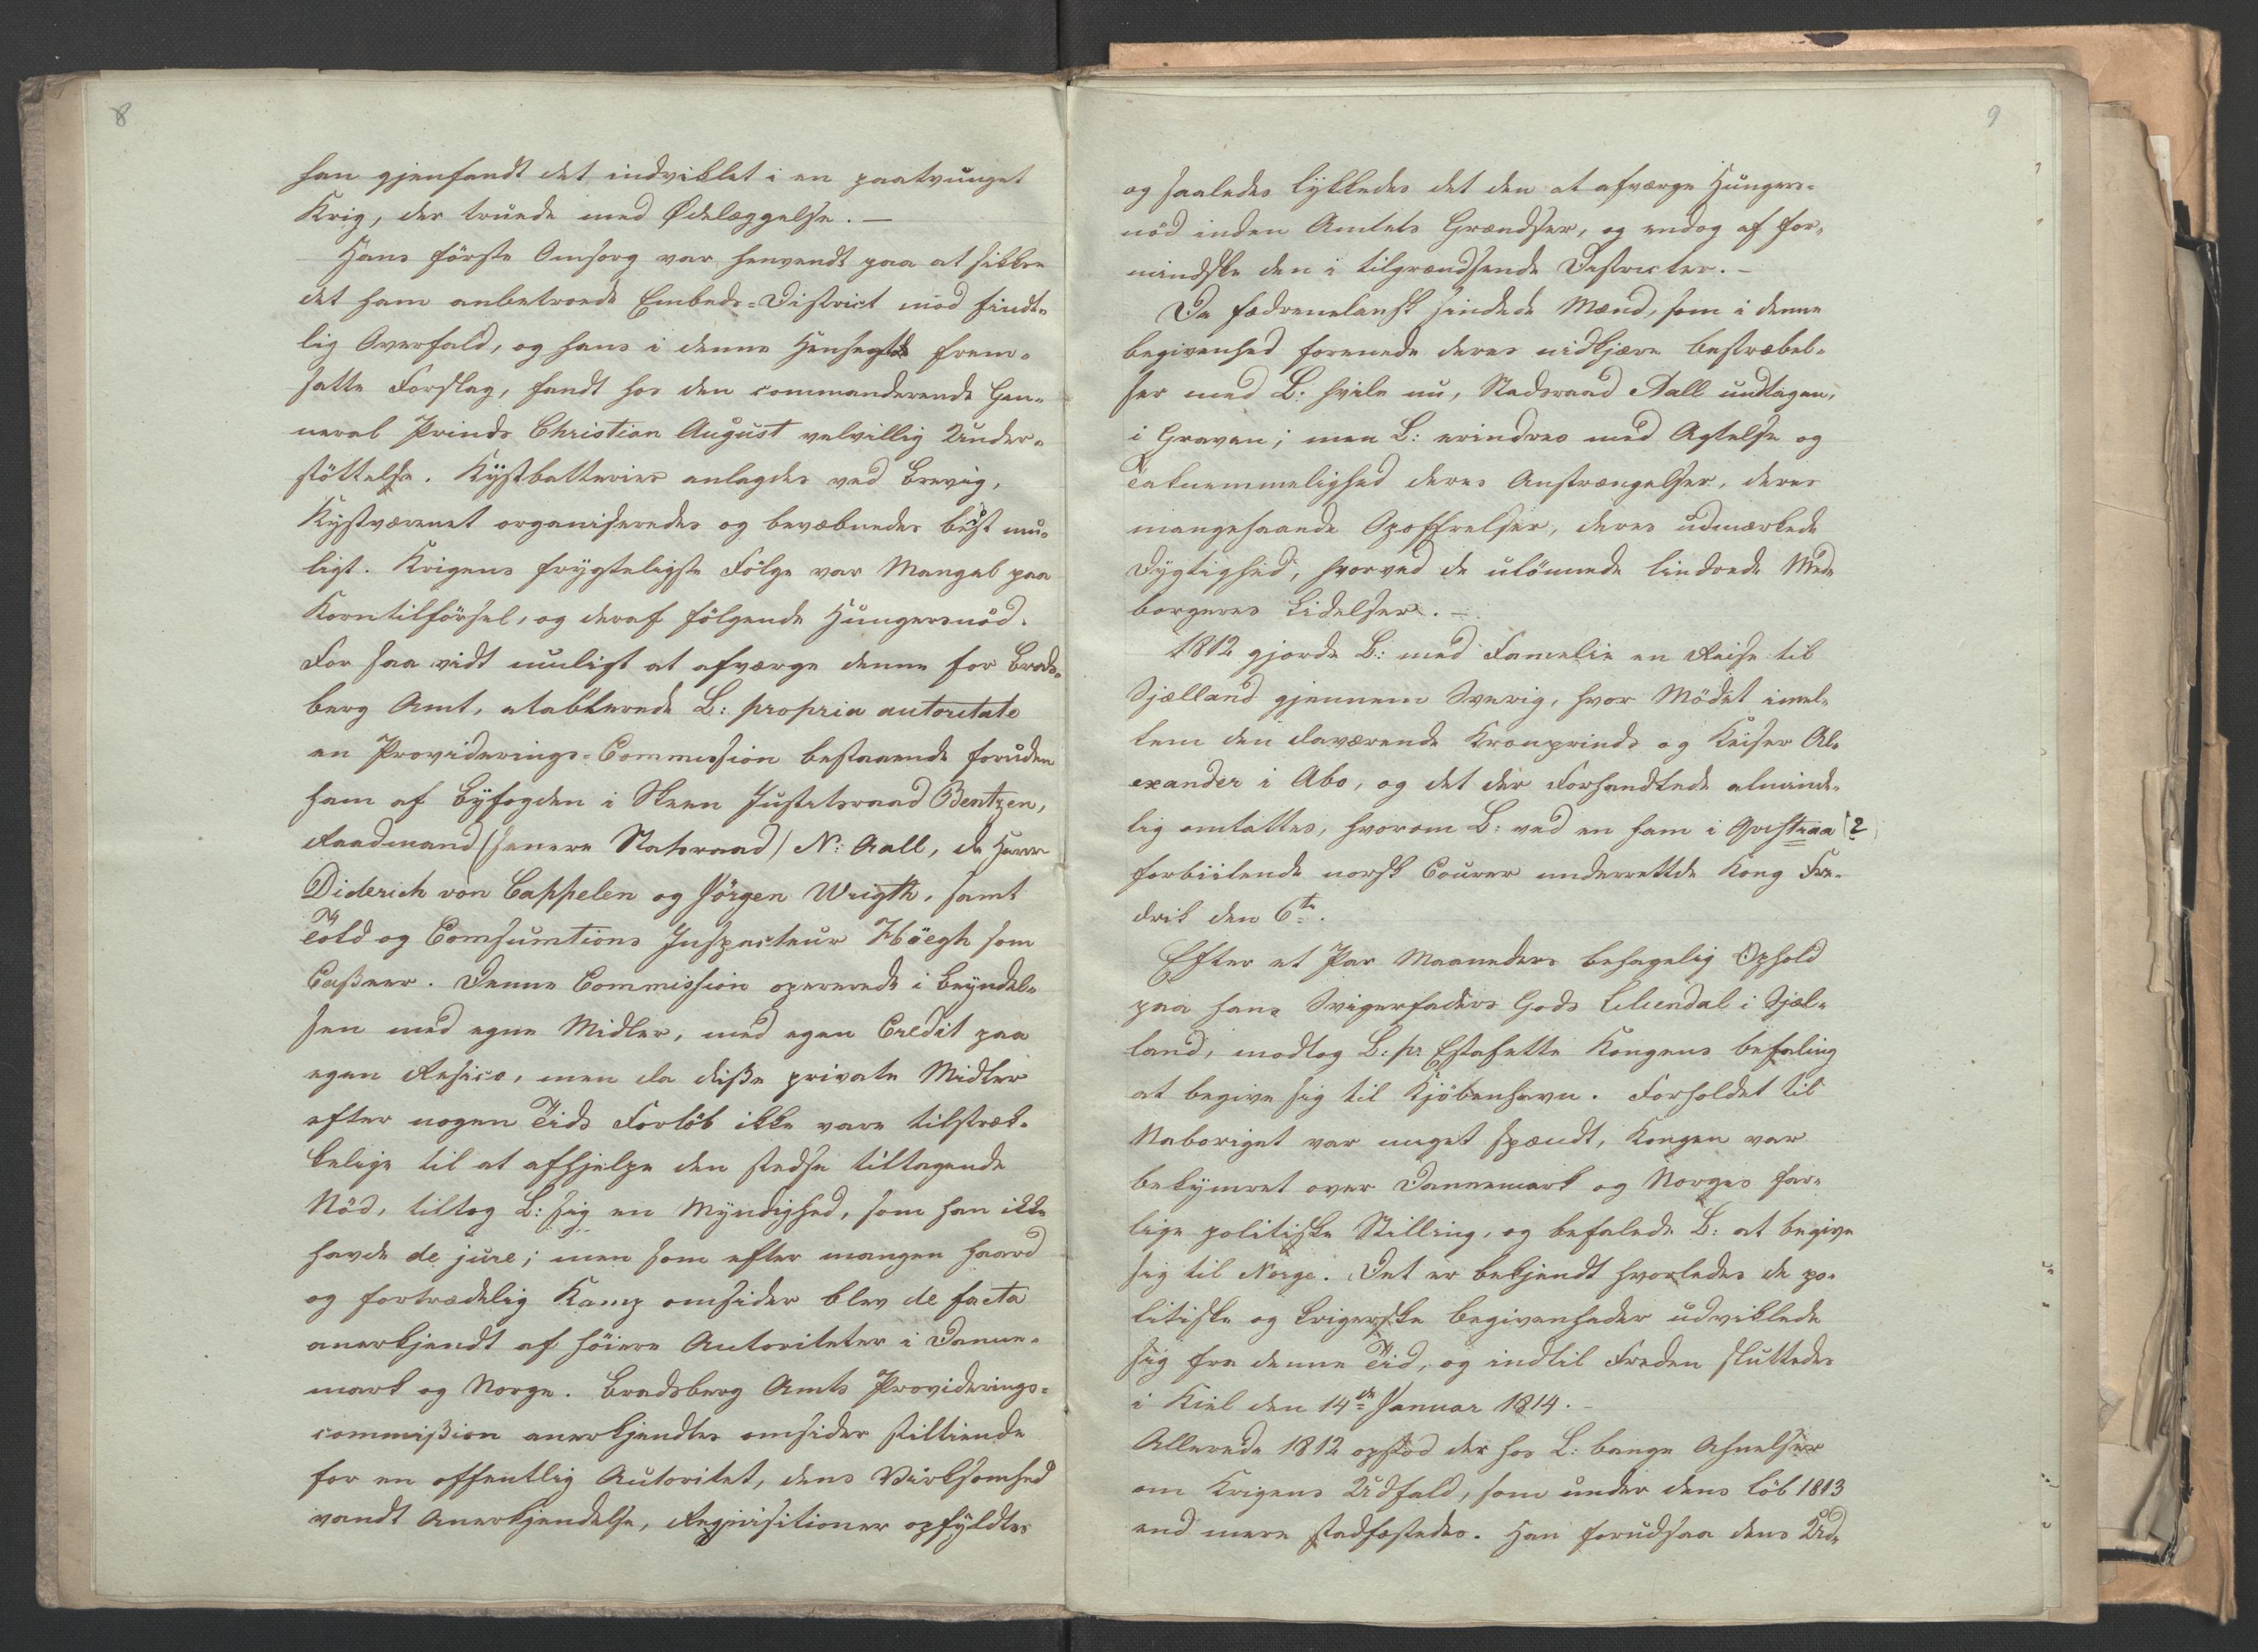 8
han gjenfandt det indviklet i en paatvunget
Krig, der truede med Ødelæggelse. —
Hans förste Omsorg var henvendt paa at sikkre
det ham anbetroede Embeds=District mod findt-
lig Overfald, og hans i denne Henseende frem-
satte Forslag, fandt hos den commanderende Gen-
neral Prinds Christian August velvillig Under-
stöttelse. Kystbatterier anlagdes ved Brevig,
Kystværnet organiseredes og bevæbnedes best mu-
ligt. Krigens frygteligste Fölge var Mangel paa
Korntilförsel, og deraf fölgende Hungersnöd.
For saa vidt muligt at afværge denne for Brads-
berg Amt, etablerede L: propria autoritate
en Providerings=Commission bestaaende foruden
ham af Byfogden i Skeen Justitsraad Bentzen,
Raadmand (senere Statsraad) N: Aall, de Herrer
Diderich von Cappelen og Jörgen Wrigth, samt
Told og Comsumtions Inspecteur Höegh som
Casseer. Denne Commission opererede i Beyndel-
sen med egne Midler, med egen Credit paa
egen Resico, men da disse private Midler
efter nogen Tids Forlöb ikke vare tilstræk-
kelige til at afhjelpe den stedse tiltagende
Nöd, tiltog L: sig en Myndighed, som han ikke
havde de jure; men som efter mangen haard
og fortrædelig Kamp omsider blev de facta
anerkjendt af höiere Autoriteter i Danne-
mark og Norge. Bradsberg Amts Providerings=
commission anerkjendtes omsider stiltiende
for en offentlig Autoritet, dens Virksomhed
vandt Anerkjendelse, Reqvisitioner opfyldtes
9
og saaledes lykkedes det den at afværge Hungers=
nöd inden Amtets Grændser, og endog at for-
mindske den i tilgrændsende Districter. —
De fædrenelansk sindede Mænd, som i denne
begivenhed forenede deres nidkjære bestræbel-
ser med L: hvile nu, Stadsraad Aall undtagen,
i Graven; men L: erindres med Agtelse og
Taknemmelighed deres Anstrængelser, deres
mangehaande Opoffrelser, deres udmærkede
Dygtighed, hvorved de ulönnede lindrede Med-
borgeres Lidelser. —
1812 gjorde L: med Famelie en Reise til
Sjælland gjennem Sverig, hvor Mödet imel-
lem den daværende Kronprinds og Keiser Al-
exander i Abo, og det der Forhandlede alminde-
lig omtaltes, hvorom L: ved en ham i (?)
forbiilende norsk Courer underrettede Kong Fre-
drik den 6te.
Efter et Par Maaneders behagelig Ophold
paa hans Svigerfaders Gods Liliendal i Sjæl-
land, modtog L: pr Estafette Kongens befaling
at begive sig til Kjöbenhavn. Forholdet til
Naboriget var meget spændt, Kongen var
bekymret over Dannemark og Norges far-
lige politiske Stilling, og befalede L: at begive
sig til Norge. Det er bekjendt hvorledes de po-
litiske og krigerske begivenheder udviklede
sig fra denne Tid, og indtil Freden sluttedes
i Kiel den 14de Januar 1814. —
Allerede 1812 opstod der hos L: bange Ahnelser
om Krigens Udfald, som under dens löb 1813
end mere stadfæstedes. Han forudsaa dens Ud-